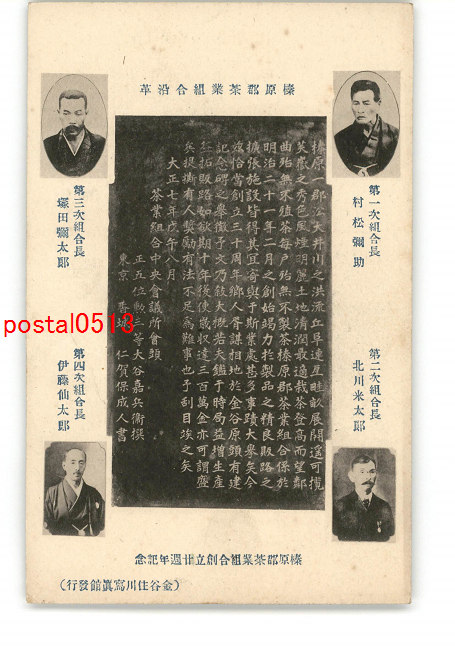 榛原郡茶業組合沿革
第一次組合長
村松彌助
第二次組合長
北川米太郎
榛原一郡沿大井川之洪流丘阜連星畦畝展開遙可攬
芙嶽之秀色風煙明麗土地清潤最適栽茶登高而望鄰
曲殆無不植茶每戶殆無不製茶榛原郡茶業組合係於
明治二十一年二月之創始竭力於製品之精良販路之
擴張施設皆得其宜寄與于斯業處甚多事蹟大擧矣今
恰當創立三十周年鄉人胥謀相地於金谷原頭有建
記念碑之擧徵予文乃敍大槪若夫鑑于時局益增生産
丕拓販路如欲期十年後使歲收達三百萬金亦可謂盛
矣提撕有人奬勵有法不足爲難事也予刮目竢之矣
大正七年戊午八月
茶業組合中央會議所會頭
正五位勳三等大谷嘉兵衞撰
東京 香城 仁賀保成人書
第三次組合長
塚田彌太郎
第四次組合長
伊藤仙太郎
榛原郡茶業組合創立卅週年記念
(金谷住川寫眞館發行)
postal0513